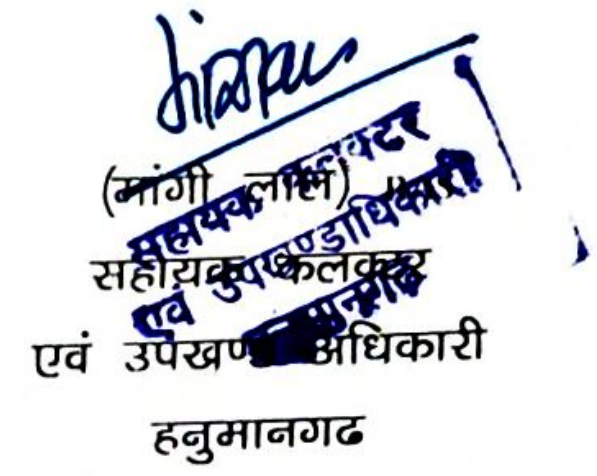 (मांगी लाल)
सहायक कलक्टर
एवं उपखण्ड अधिकारी
हनुमानगढ
सहायक कलक्टर
एवं उपखण्डाधिकारी
हनुमानगढ़